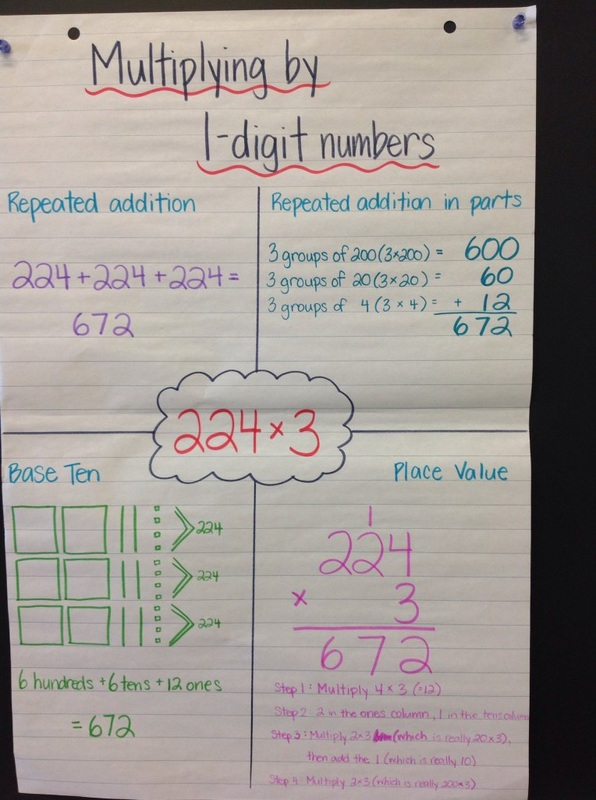 Multiplying by
1-digit numbers
Repeated addition
224+224+224=
672
Repeated addition in parts
3 groups of 200 (3×200) = 600
3 groups of 20 (3×20) = 60
3 groups of 4 (3 × 4) = + 12
672
224 × 3
Base Ten
224
224
224
6 hundreds + 6 tens + 12 ones
= 672
Place Value
1
224
× 3
672
Step 1: Multiply 4 × 3 (=12)
Step 2: 2 in the ones column, 1 in the tens column
Step 3: Multiply 2×3 (which is really 20×3),
then add the 1 (which is really 10)
Step 4: Multiply 2×3 (which is really 200×3)